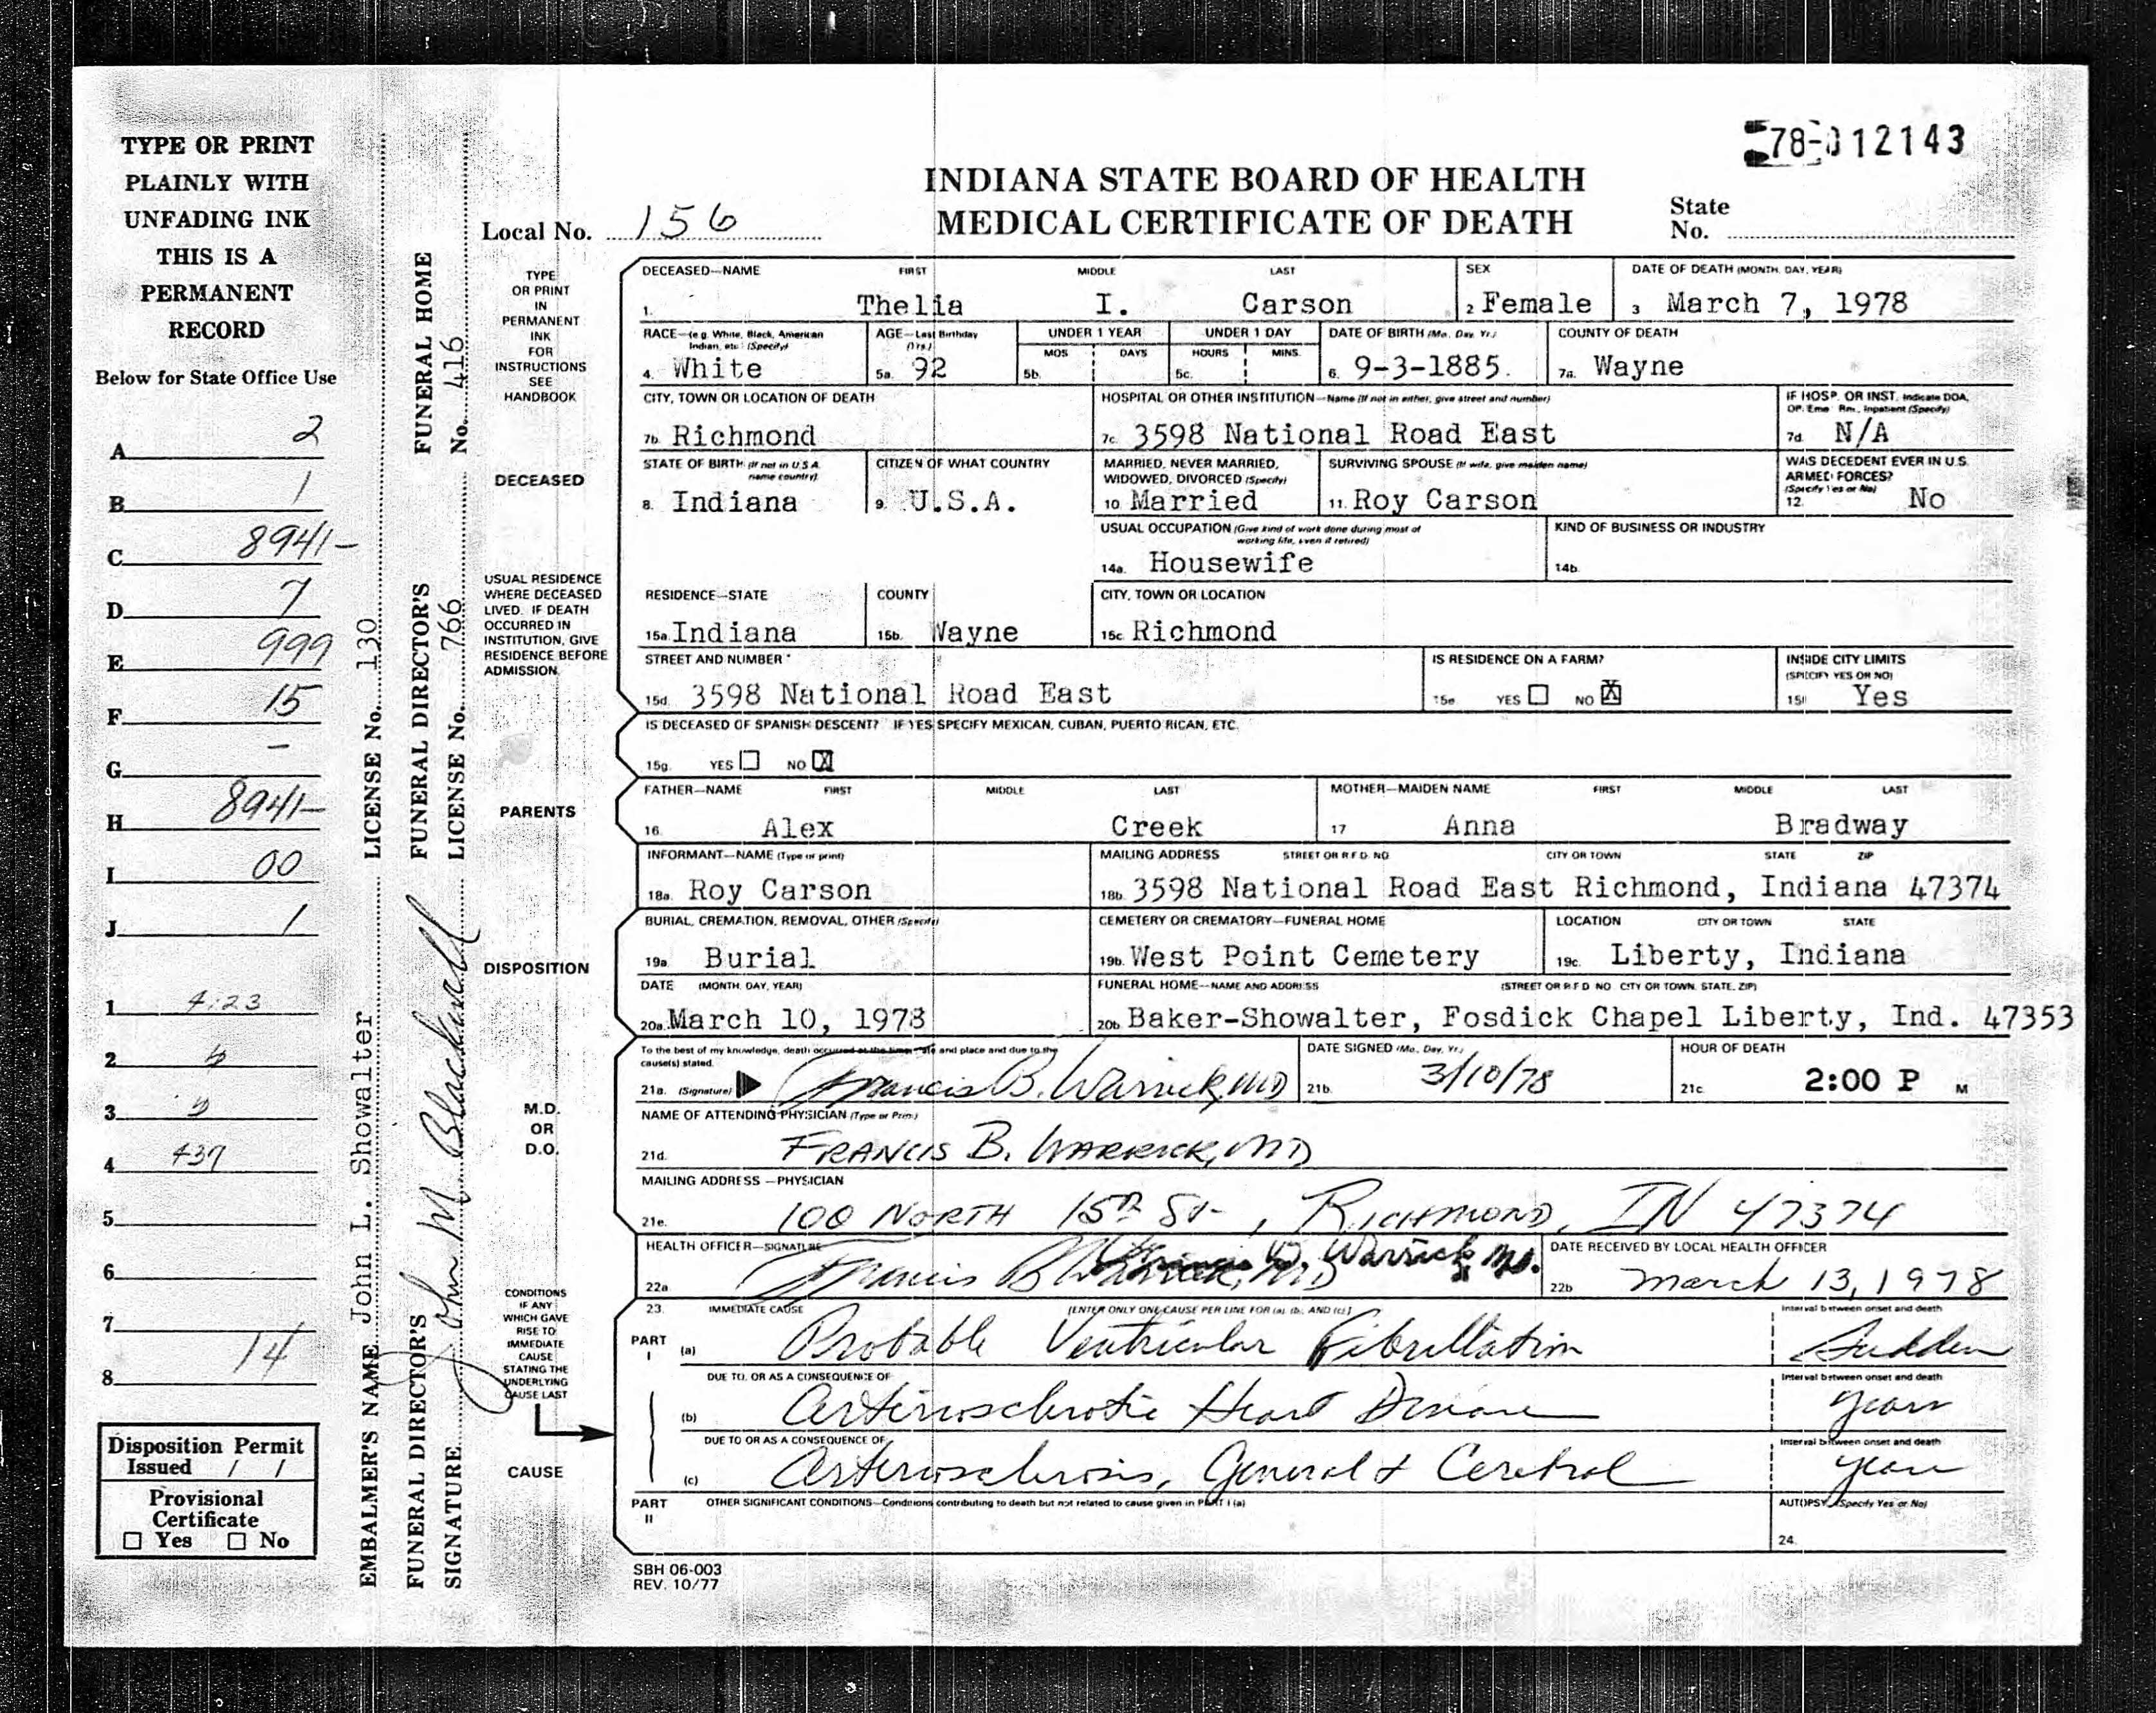 TYPE OR PRINT
PLAINLY WITH
UNFADING INK
THIS IS A
PERMANENT
RECORD
Below for State Office Use
A 2
B 1
C 8941-
D 7
E 999
F 15
G -
H 8941-
I 00
J 1
1 4:23
2
3
4 437
5
6
7
8 14
Disposition Permit
Issued / /
Provisional
Certificate
☐ Yes ☐ No
EMBALMER'S NAME John L. Showalter LICENSE No. 130
FUNERAL DIRECTOR'S FUNERAL DIRECTOR'S FUNERAL HOME
SIGNATURE John M Blackwell LICENSE No. 766 No. 416
78-012143
INDIANA STATE BOARD OF HEALTH
MEDICAL CERTIFICATE OF DEATH
Local No. 156
State
No.
TYPE
OR PRINT
IN
PERMANENT
INK
FOR
INSTRUCTIONS
SEE
HANDBOOK
DECEASED
DECEASED—NAME FIRST MIDDLE LAST SEX DATE OF DEATH (MONTH, DAY, YEAR)
1. Thelia I. Carson 2 Female 3 March 7, 1978
RACE—(e.g. White, Black, American Indian, etc.) (Specify) AGE—Last Birthday (Yrs.) UNDER 1 YEAR UNDER 1 DAY DATE OF BIRTH (Mo., Day, Yr.) COUNTY OF DEATH
MOS DAYS HOURS MINS.
4. White 5a. 92 5b. 5c. 6. 9-3-1885. 7a. Wayne
CITY, TOWN OR LOCATION OF DEATH HOSPITAL OR OTHER INSTITUTION—Name (If not in either, give street and number) IF HOSP. OR INST. Indicate DOA, OP. Eme. Rm., Inpatient (Specify)
7b. Richmond 7c. 3598 National Road East 7d. N/A
STATE OF BIRTH (If not in U.S.A. name country) CITIZEN OF WHAT COUNTRY MARRIED, NEVER MARRIED, WIDOWED, DIVORCED (Specify) SURVIVING SPOUSE (If wife, give maiden name) WAS DECEDENT EVER IN U.S. ARMED FORCES? (Specify Yes or No)
8. Indiana 9. U.S.A. 10 Married 11. Roy Carson 12. No
USUAL OCCUPATION (Give kind of work done during most of working life, even if retired) KIND OF BUSINESS OR INDUSTRY
14a. Housewife 14b.
USUAL RESIDENCE
WHERE DECEASED
LIVED. IF DEATH
OCCURRED IN
INSTITUTION, GIVE
RESIDENCE BEFORE
ADMISSION.
RESIDENCE—STATE COUNTY CITY, TOWN OR LOCATION
15a. Indiana 15b. Wayne 15c. Richmond
STREET AND NUMBER IS RESIDENCE ON A FARM? INSIDE CITY LIMITS (SPECIFY YES OR NO)
15d. 3598 National Road East 15e YES ☐ NO ☒ 15f Yes
IS DECEASED OF SPANISH DESCENT? IF YES SPECIFY MEXICAN, CUBAN, PUERTO RICAN, ETC.
15g. YES ☐ NO ☒
PARENTS
FATHER—NAME FIRST MIDDLE LAST MOTHER—MAIDEN NAME FIRST MIDDLE LAST
16. Alex Creek 17 Anna Bradway
INFORMANT—NAME (Type or print) MAILING ADDRESS STREET OR R.F.D. NO CITY OR TOWN STATE ZIP
18a. Roy Carson 18b. 3598 National Road East Richmond, Indiana 47374
DISPOSITION
BURIAL, CREMATION, REMOVAL, OTHER (Specify) CEMETERY OR CREMATORY—FUNERAL HOME LOCATION CITY OR TOWN STATE
19a. Burial 19b. West Point Cemetery 19c. Liberty, Indiana
DATE (MONTH, DAY, YEAR) FUNERAL HOME—NAME AND ADDRESS (STREET OR R.F.D. NO. CITY OR TOWN, STATE, ZIP)
20a. March 10, 1978 20b. Baker-Showalter, Fosdick Chapel Liberty, Ind. 47353
M.D.
OR
D.O.
To the best of my knowledge, death occurred at the time, date and place and due to the cause(s) stated. DATE SIGNED (Mo., Day, Yr.) HOUR OF DEATH
21a. (Signature) Francis B. Warrick, MD 21b. 3/10/78 21c. 2:00 P M
NAME OF ATTENDING PHYSICIAN (Type or Print)
21d. FRANCIS B. WARRICK, MD
MAILING ADDRESS —PHYSICIAN
21e. 100 NORTH 15th St., RICHMOND, IN 47374
HEALTH OFFICER—SIGNATURE DATE RECEIVED BY LOCAL HEALTH OFFICER
22a Francis B Warrick, MD Francis B. Warrick, MD. 22b March 13, 1978
CONDITIONS
IF ANY
WHICH GAVE
RISE TO
IMMEDIATE
CAUSE
STATING THE
UNDERLYING
CAUSE LAST
CAUSE
23. IMMEDIATE CAUSE (ENTER ONLY ONE CAUSE PER LINE FOR (a), (b), AND (c)) Interval between onset and death
PART I (a) Probable Ventricular Fibrillation Sudden
DUE TO, OR AS A CONSEQUENCE OF Interval between onset and death
(b) Arteriosclerotic Heart Disease years
DUE TO OR AS A CONSEQUENCE OF Interval between onset and death
(c) Arteriosclerosis, General & Cerebral years
PART II OTHER SIGNIFICANT CONDITIONS—Conditions contributing to death but not related to cause given in PART I (a) AUTOPSY (Specify Yes or No)
24.
SBH 06-003
REV. 10/77